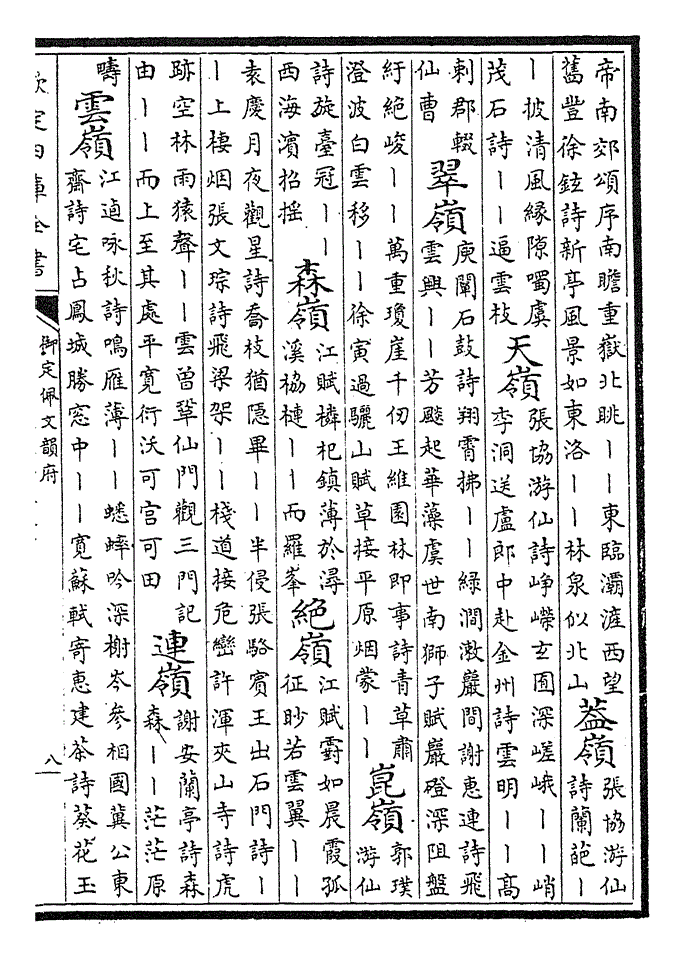 帝南郊頌序南瞻重嶽北眺丨丨東臨灞滻西望
舊豐徐鉉詩新亭風景如東洛丨丨林泉似北山
葢嶺
張協游仙
詩蘭葩丨
丨披清風緣隙噣虞
茂石詩丨丨逼雲枝
天嶺
張協游仙詩崢嶸玄圃深嵯峨丨丨峭
李洞送盧郎中赴金州詩雲明丨丨高
刺郡輟
仙曹
翠嶺
庾闡石鼓詩翔霄拂丨丨綠澗漱巖間謝惠連詩飛
雲興丨丨芳飇起華藻虞世南獅子賦巖磴深阻盤
紆絕峻丨丨萬重瓊崖千仞王維園林即事詩青草肅
澄波白雲移丨丨徐寅過驪山賦草接平原烟蒙丨丨
崑嶺
郭璞
游仙
詩旋臺冠丨丨
西海濱招揺
森嶺
江賦橉杞鎮薄於潯
溪栛槤丨丨而羅峯
絕嶺
江賦霨如晨霞孤
征眇若雲翼丨丨
袁慶月夜觀星詩喬枝猶隠畢丨丨半侵張駱賓王出石門詩丨
丨上棲烟張文琮詩飛梁架丨丨棧道接危巒許渾夾山寺詩虎
跡空林雨猿聲丨丨雲曾鞏仙門觀三門記
由丨丨而上至其處平寛衍沃可宫可田
連嶺
謝安蘭亭詩森
森丨丨茫茫原
疇
雲嶺
江逌咏秋詩鳴雁薄丨丨蟋蟀吟深榭岑參相國冀公東
齋詩宅占鳳城勝窓中丨丨寛蘇軾寄惠建茶詩葵花玉
欽定四庫全書
御定佩文韻府
八